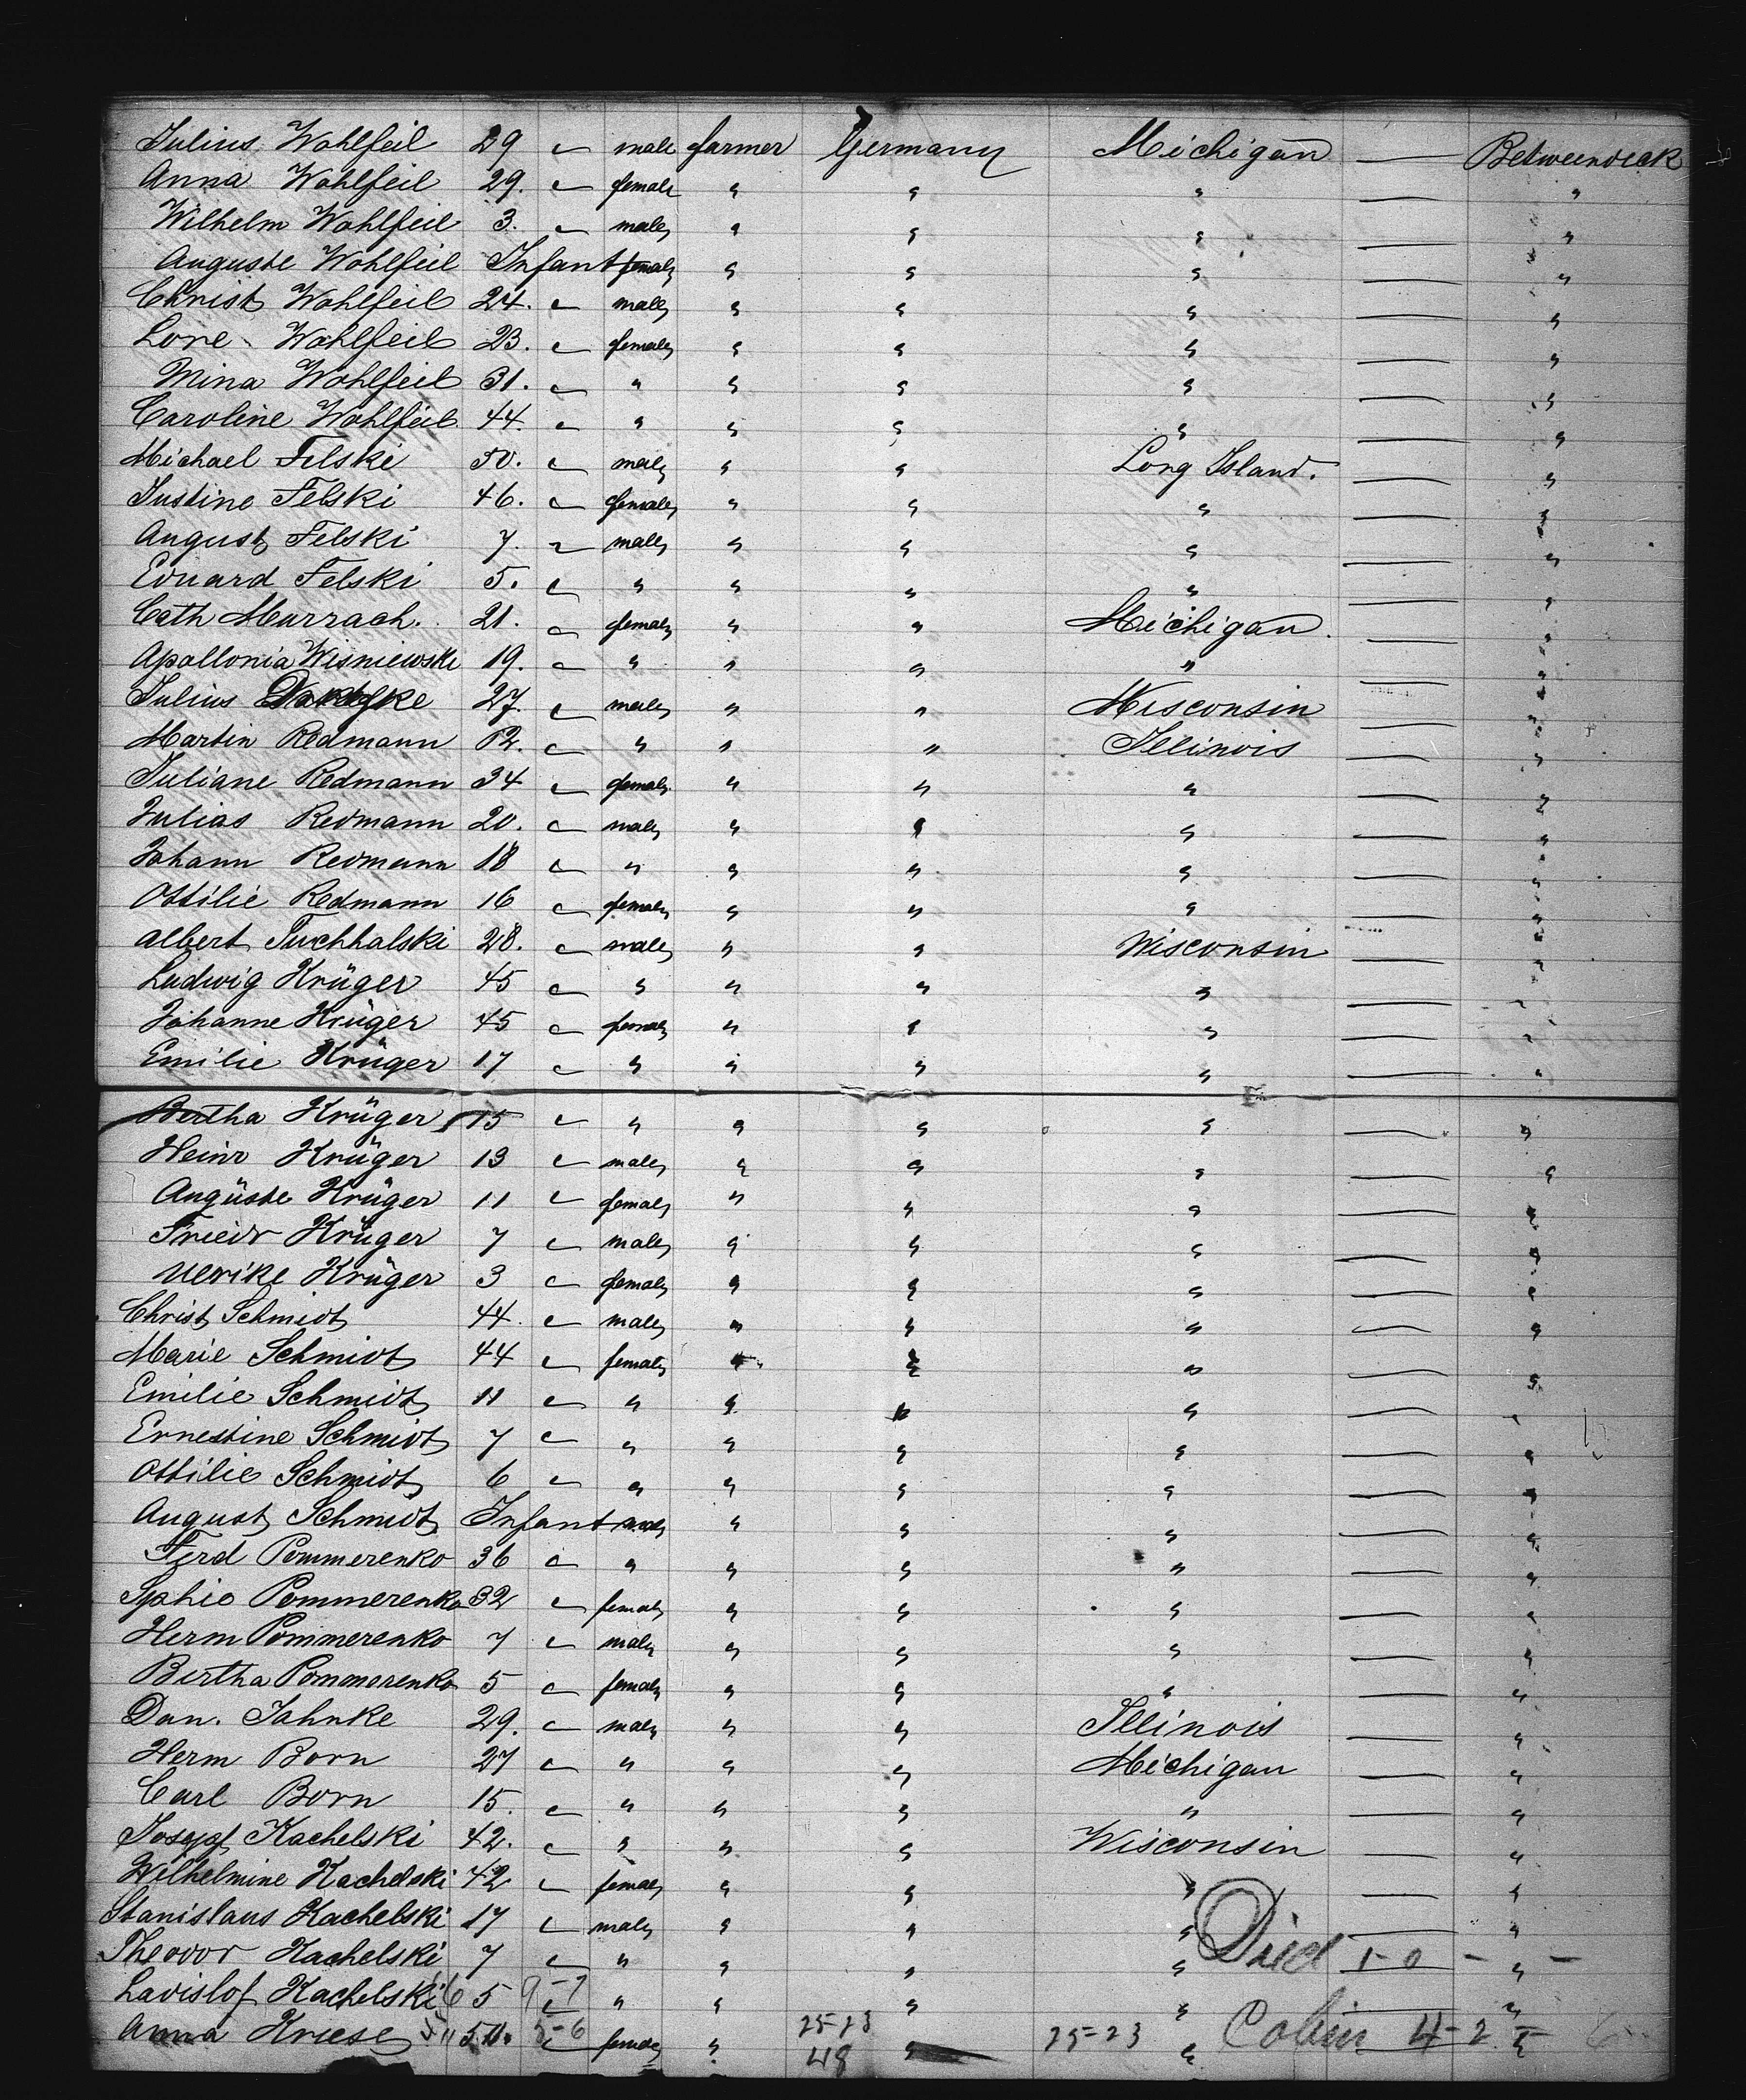 Julius Wohlfeil 29 male farmer Germany Michigan — Betweendeck
Anna Wohlfeil 29. female " " " — "
Wilhelm Wohlfeil 3. male " " " — "
Auguste Wohlfeil Infant female " " " — "
Christ Wohlfeil 24. male " " " — "
Lore Wohlfeil 23. female " " " — "
Mina Wohlfeil 31. " " " " — "
Caroline Wohlfeil 44. " " " " — "
Michael Felski 50. male " " Long Island. — "
Justine Felski 46. female " " " — "
August Felski 7. male " " " — "
Eduard Felski 5. " " " " — "
Cath Murrach. 21. female " " Michigan. — "
Apollonia Wisniewski 19. " " " " — "
Julius 27. male " " Wisconsin — "
Martin Redmann " " " Illinois — "
Juliane Redmann 34 female " " " — "
Julias Redmann 20. male " " " — "
Johann Redmann 18 " " " " — "
Ottilie Redmann 16 female " " " — "
Albert Tuchhalski 28. male " " Wisconsin — "
Ludwig Krüger 45 " " " " — "
Johanne Krüger 45 female " " " — "
Emilie Krüger 17 " " " " — "
Bertha Krüger 15 " " " " — "
Heinr Krüger 13 male " " " — "
Augüste Krüger 11 female " " " — "
Friedr Krüger 7 male " " " — "
Ulrike Krüger 3 female " " " — "
Christ Schmidt 44. male " " " — "
Marie Schmidt 44 female " " " — "
Emilie Schmidt 11 " " " " — "
Ernestine Schmidt 7 " " " " — "
Ottilie Schmidt 6 " " " " — "
August Schmidt Infant male " " " — "
Ferd Pommerenko 36 " " " " — "
Sophie Pommerenko 32 female " " " — "
Herm Pommerenko 7 male " " " — "
Bertha Pommerenko 5 female " " " — "
Dan. Jahnke 29. male " " Illinois — "
Herm Born 27 " " " Michigan — "
Carl Born 15. " " " " — "
Josepf Kachelski 42. " " " Wisconsin — "
Wilhelmine Kachelski 42 female " " " — "
Stanislaus Kachelski 17 male " " " — "
Theodor Kachelski 7 " " " " Died 1-0 - "
Ladislof Kachelski 5 9-7 " " " " — "
Anna Kriese 5-6 female " 25-23 " 25=23 " 4-2 "
48